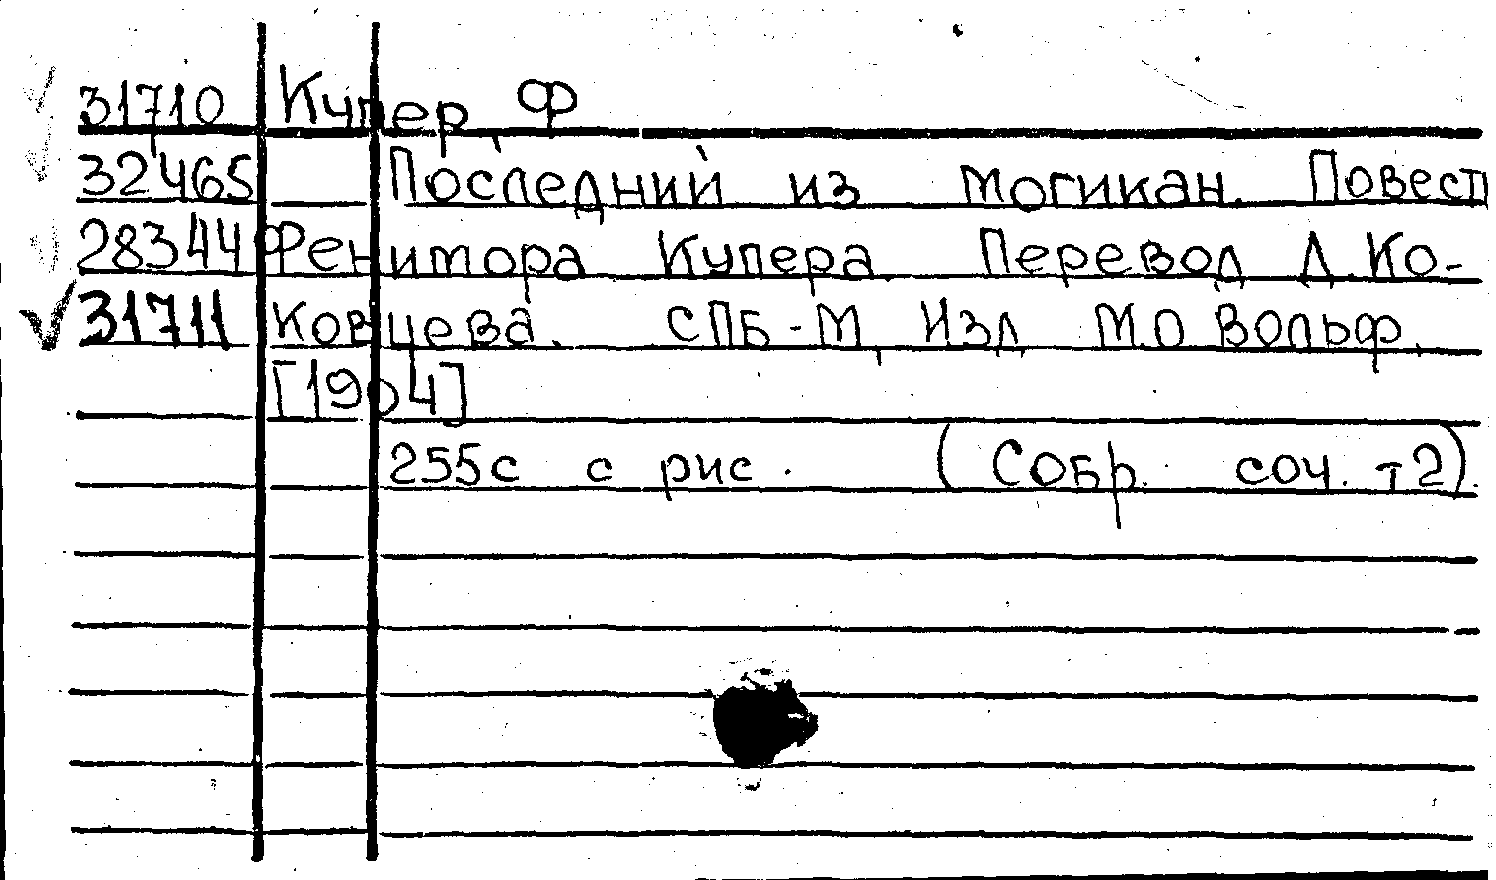 31710 Купер, Ф
32465 Последний из могикан. Повест
28344 Фенимора Купера. Перевод Д. Ко-
31711 ковцева. СПБ-М, Изд М.О Вольф,
[1904]
255с с рис. (Собр. соч. т 2).